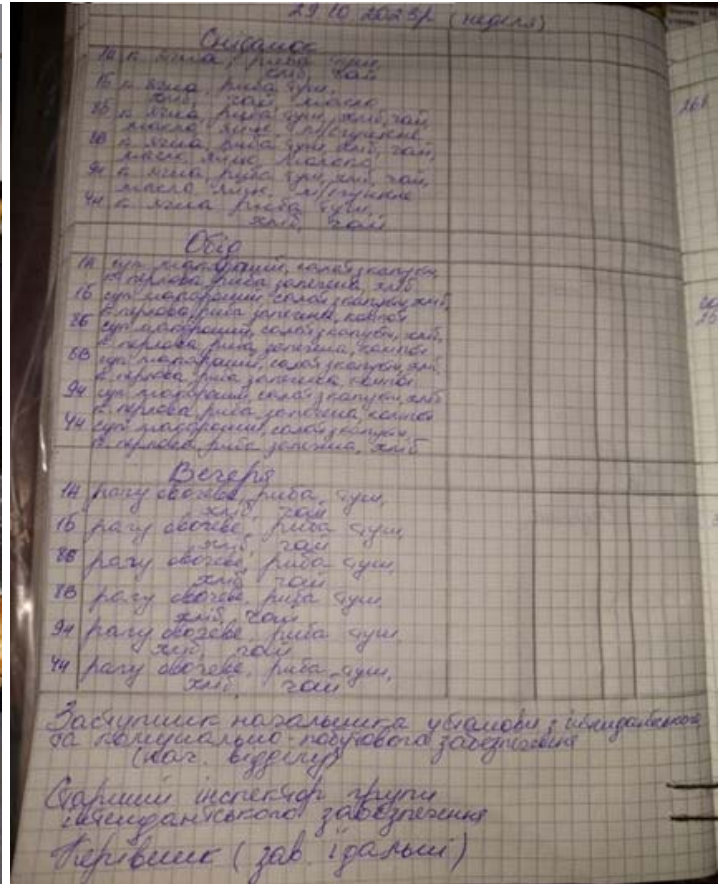 29 10 2023р (неділя)
Сніданок
1А к. ячна, риба туш,
хліб, чай
1Б к. ячна, риба туш,
хліб, чай, масло
8Б к. ячна, риба туш, хліб, чай,
масло, яйце,
8В к. ячна, риба туш, хліб, чай,
масло, яйце, молоко
9Н к. ячна, риба туш, хліб, чай,
масло
4Н к. ячна, риба туш,
хліб, чай
Обід
1А суп макаронний, салат з капусти,
к. перлова, риба запечена, хліб
1Б суп макаронний, салат з капусти, хліб,
к. перлова, риба запечена, компот
8Б суп макаронний, салат з капусти, хліб,
к. перлова, риба запечена, компот
8В суп макаронний, салат з капусти, хліб,
к. перлова, риба запечена, компот
9Н суп макаронний, салат з капусти, хліб
к. перлова, риба запечена, компот
4Н суп макаронний, салат з капусти,
к. перлова, риба запечена, хліб
Вечеря
1А рагу овочеве, риба туш,
хліб, чай
1Б рагу овочеве, риба туш,
хліб, чай
8Б рагу овочеве, риба туш,
хліб, чай
8В рагу овочеве, риба туш,
хліб, чай
9Н рагу овочеве, риба туш,
хліб, чай
4Н рагу овочеве, риба туш,
хліб, чай
Заступник начальника установи з інтендантського
та комунально-побутового забезпечення
(нач. відділу)
Старший інспектор групи
інтендантського забезпечення
Керівник (зав. їдальні)